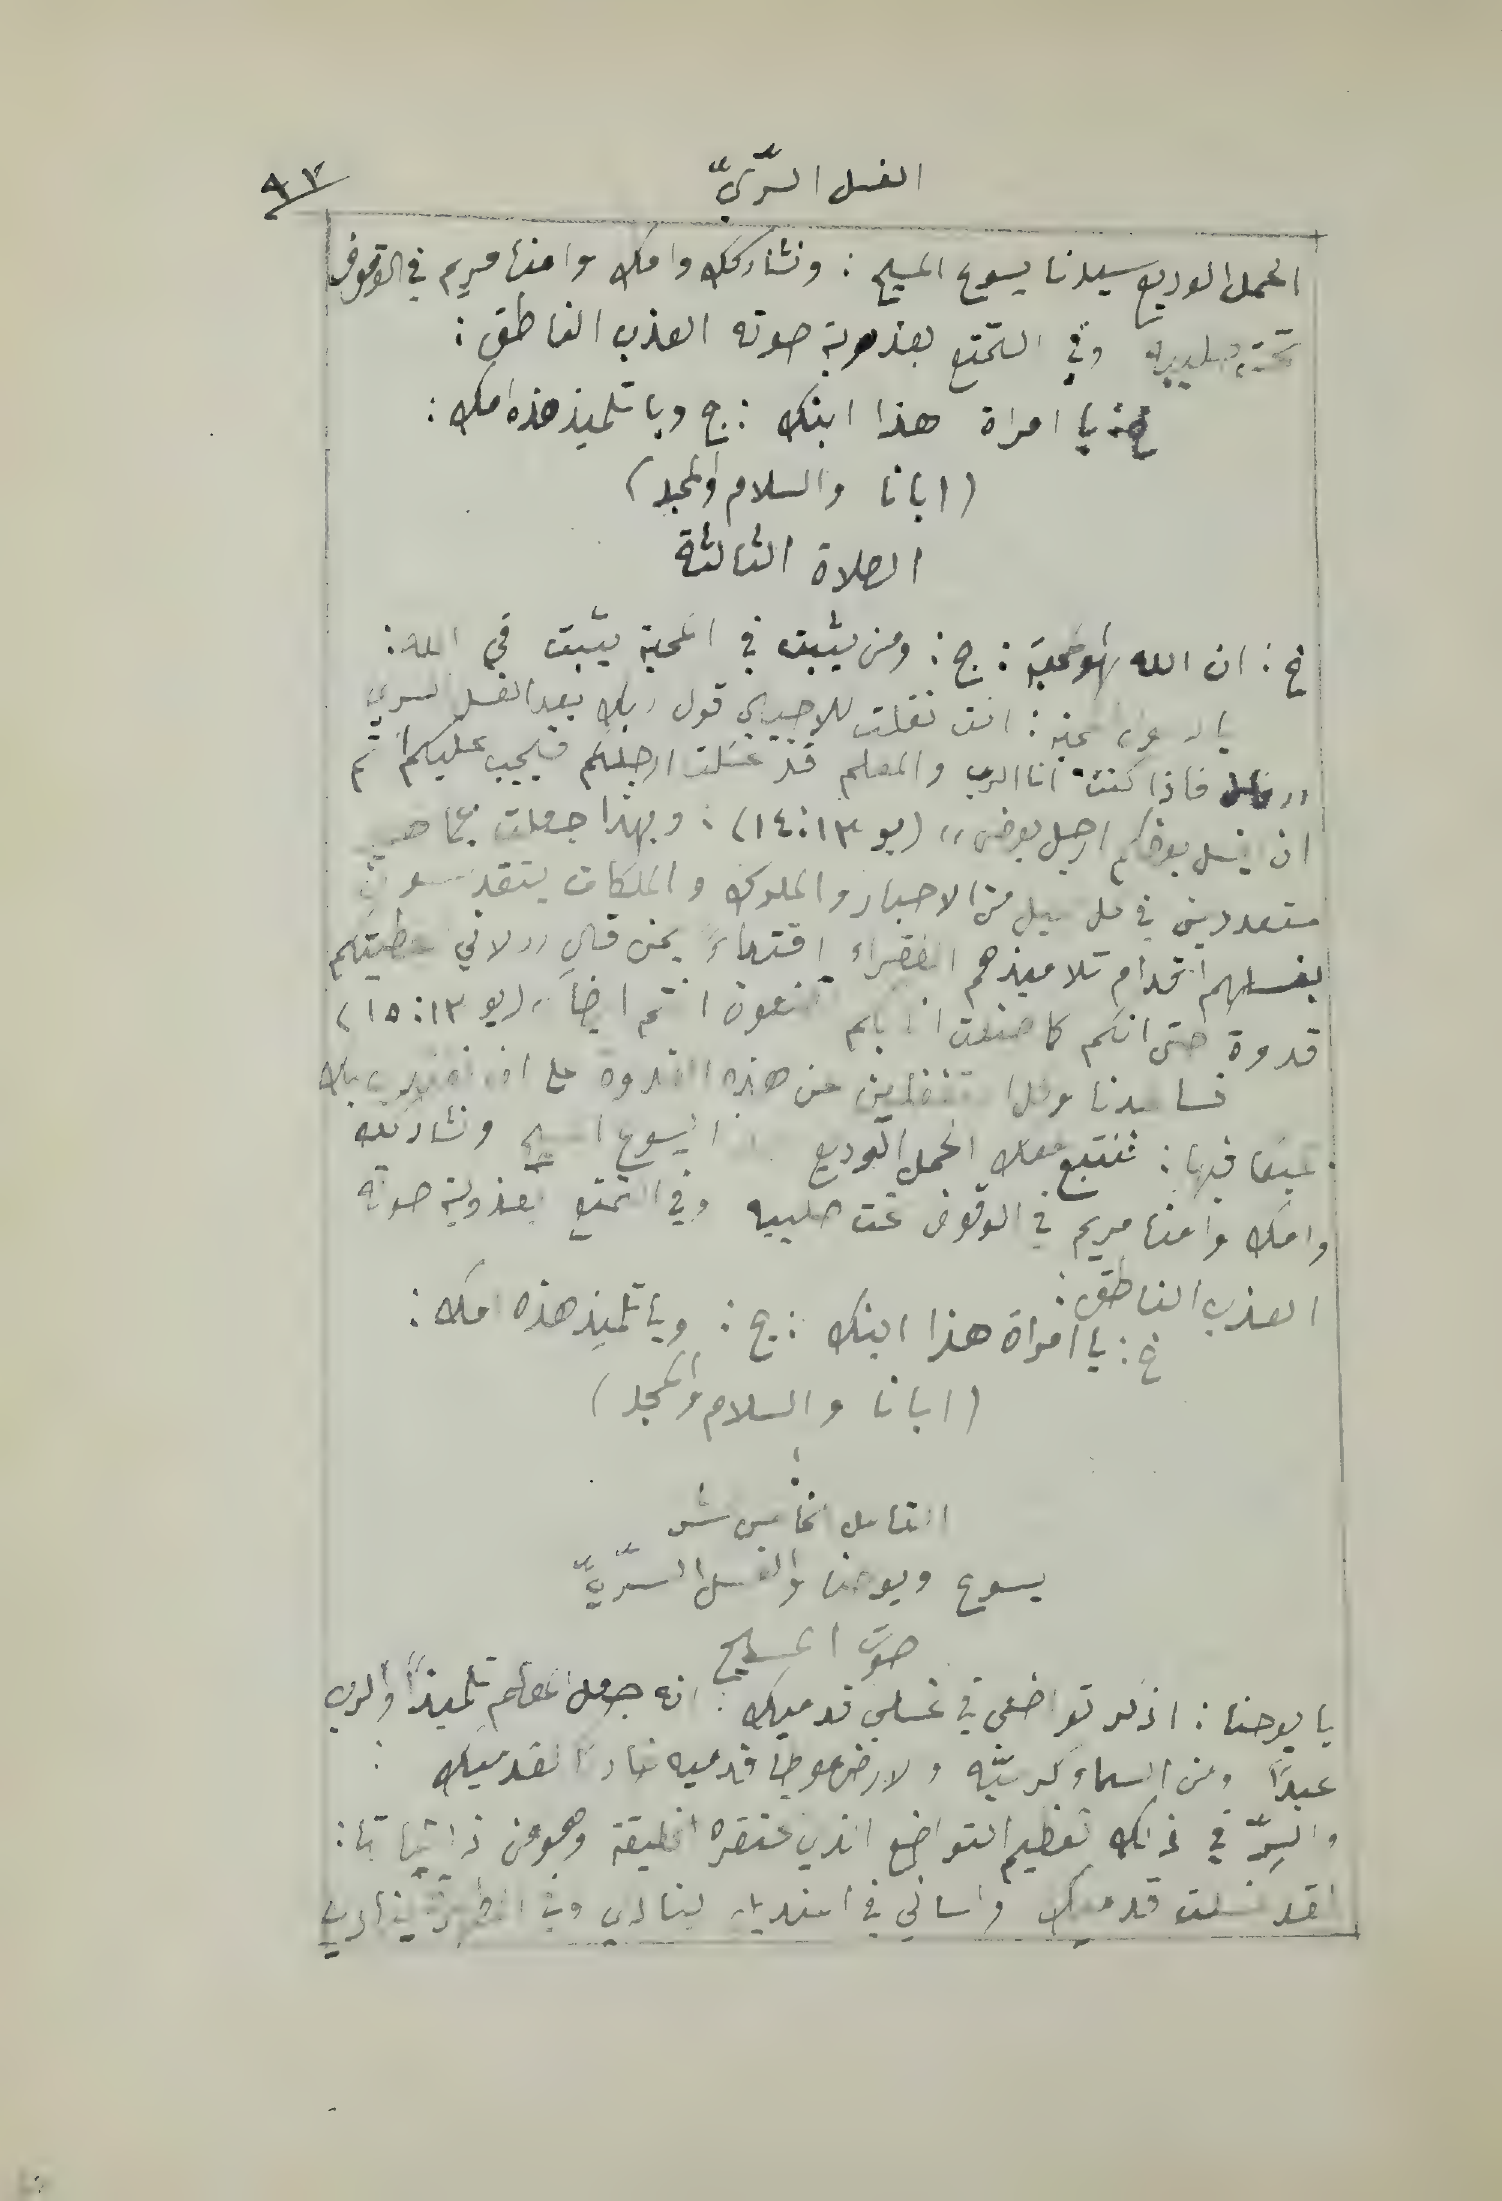 الغسل السّرّيّ
٩٣
الحمل الوديع سيدنا يسوع المسيح : ونشاركك وامك وامنا مريم في الوقوف
تحت صليبه وفي التمتع بعذوبة صوته العذب الناطق :
خ : يا امراة هذا ابنك : ج ويا تلميذ هذه امك :
(ابانا والسلام والمجد)
الصلاة الثالثة
خ : ان الله لهو محبة : ج : ومن يثبت في المحبة يثبت في الله :
يا رسول المحبة : انت نقلت للاجيال قول ربك بعد الغسل السري
,, فاذا كنت انا الرب والمعلم قد غسلت ارجلكم فيجب عليكم انتم
ان يغسل بعضكم ارجل بعض ,, (يو ١٣:١٤) : وبهذا جعلت
متعددين في كل جيل من الاحبار والملوك والملكات يتقدسون
بغسلهم اقدام تلاميذهم الفقراء اقتداءً بمن قال ,, لاني اعطيتكم
قدوة حتى انكم كما صنعت انا بكم تصنعون انتم ايضاً ,, (يو ١٣:١٥)
فساعدنا عن هذه القدوة على ان
فيها : فنتبع معك الحمل الوديع يسوع المسيح ونشاركك
وامك وامنا مريم في الوقوف تحت صليبه وفي التمتع بعذوبة صوته
العذب الناطق :
خ : يا امراة هذا ابنك : ج : ويا تلميذ هذه امك :
(ابانا والسلام والمجد)
التامل الخامس عشر
يسوع ويوحنا والغسل السّرّيّ
صوت المسيح
يا يوحنا : اذكر تواضعي في غسلي قدميك : انه جعل المعلم تلميذاً والرب
عبداً ومن السماء كرسيّه والارض موطئ قدميه لقدميك :
والسّرّ في ذلك تعظيم التواضع الذي تحتقره الخليقة وهو من
لقد غسلت قدميك